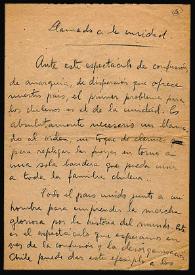 Llamado a la unidad
Ante este espectáculo de confusión,
de anarquía, de dispersión que ofrece
nuestro país, el primer problema para
los chilenos es el de la unidad. Es
absolutamente necesario un llama
do al orden, un toque de
para replegar las en torno a
una sola bandera que pueda unir
a toda la familia chilena.
Todo el país unido junto a un
hombre para emprender la marcha
gloriosa por la historia del mundo. Este
es el espectáculo que esperamos
ver de la confusión y la
Chile puede dar este ejemplo a los